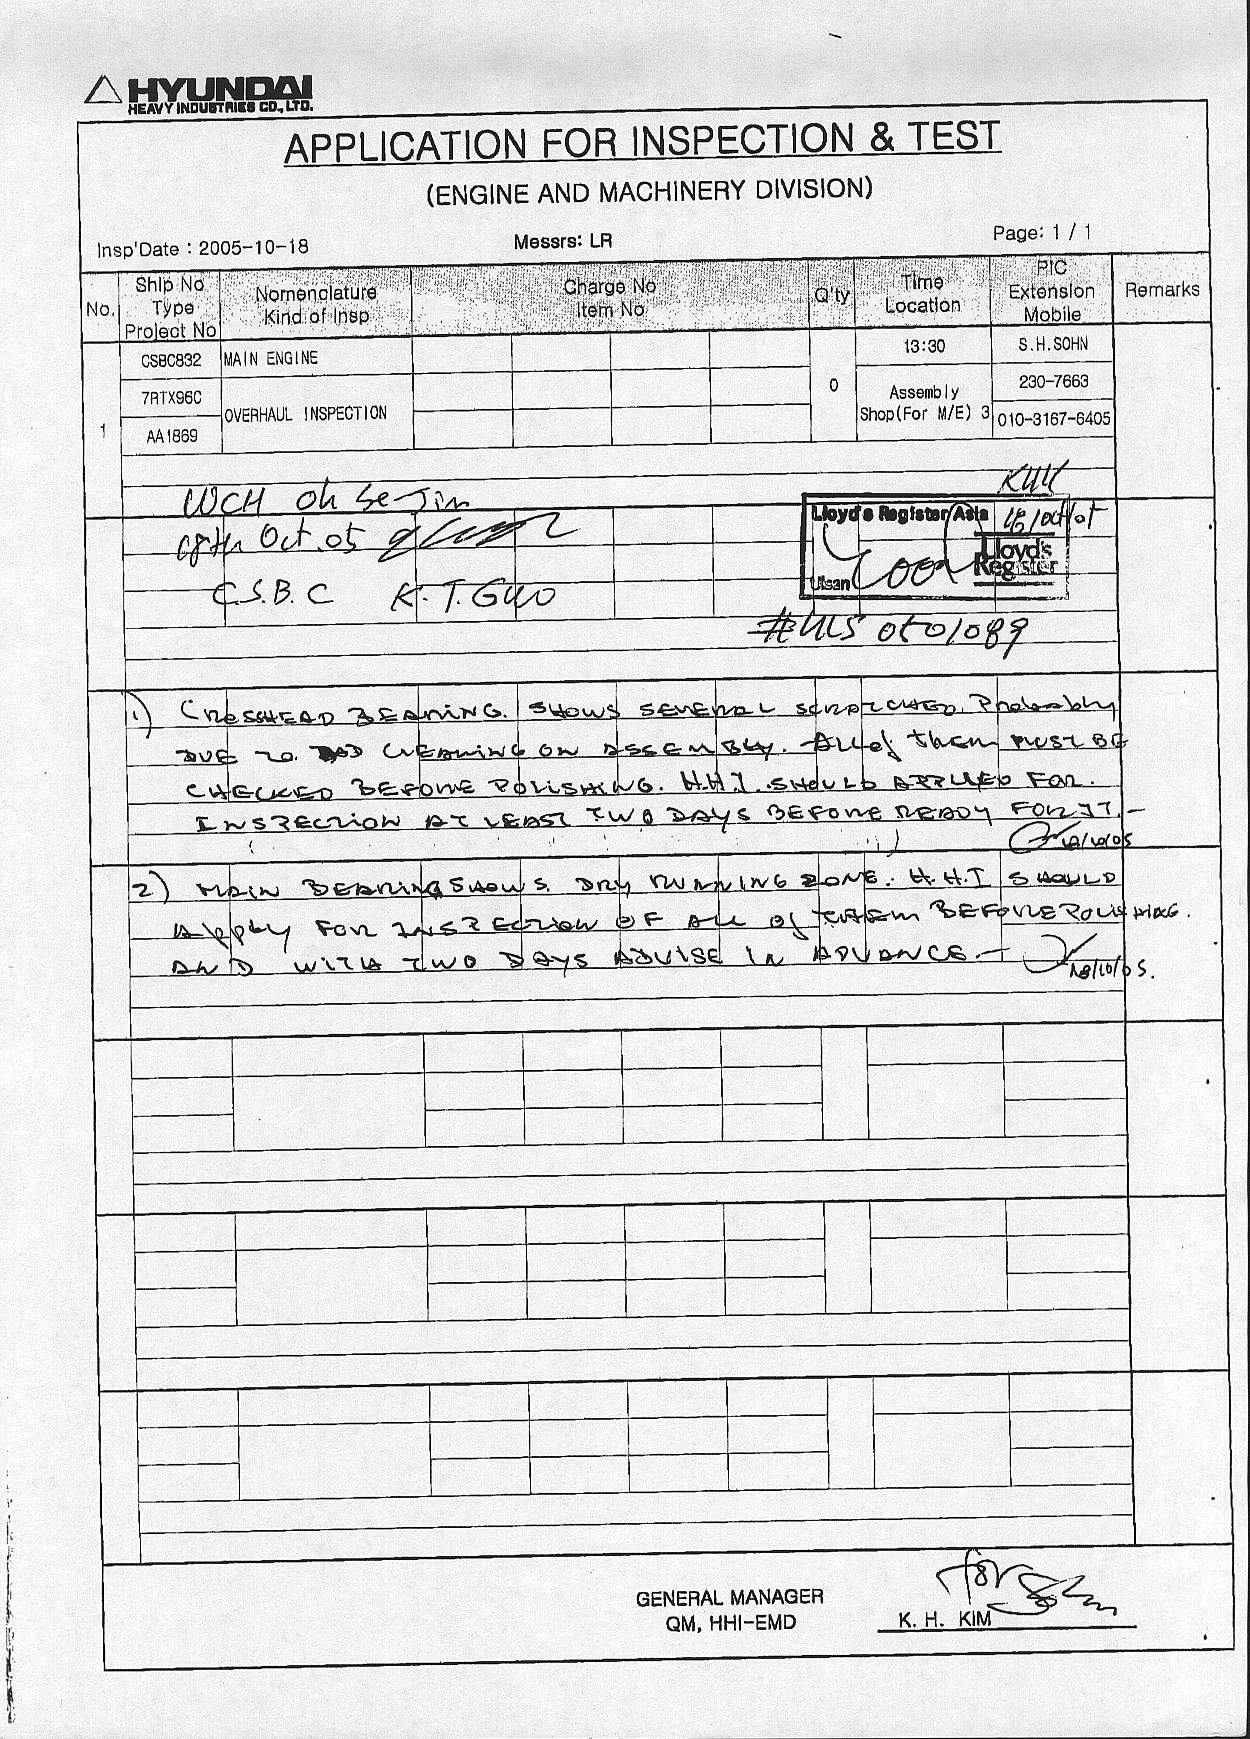 HYUNDAI
HEAVY INDUSTRIES CO., LTD.
APPLICATION FOR INSPECTION & TEST
(ENGINE AND MACHINERY DIVISION)
Insp'Date : 2005-10-18 Messrs: LR Page: 1 / 1
No. Ship No Type Project No Nomenclature Kind of Insp Charge No Item No Q'ty Time Location PIC Extension Mobile Remarks
CSBC832 MAIN ENGINE 13:30 S.H.SOHN
7RTX96C 0 Assembly 230-7663
1 AA1869 OVERHAUL INSPECTION Shop(For M/E) 3 010-3167-6405
WCH Oh Se-Jin
Oct. 05
Lloyd's Register Asia
Lloyd's
Register
Ulsan
C.S.B.C K.T.GUO
1) CROSSHEAD BEARING. SHOWS SEVERAL SCRATCHED. Probably
DUE TO BAD CLEANING ON ASSEMBLY. All of them MUST BE
CHECKED BEFORE POLISHING. H.H.I. SHOULD APPLIED FOR.
INSPECTION AT LEAST TWO DAYS BEFORE READY FOR IT.-
18/10/05
2) MAIN BEARING SHOWS. DRY RUNNING ZONE. H.H.I SHOULD
Apply FOR INSPECTION OF ALL Of THEM BEFORE POLISHING.
AND WITH TWO DAYS ADVISE IN ADVANCE.-
18/10/05.
for Sohn
GENERAL MANAGER
QM, HHI-EMD K. H. KIM